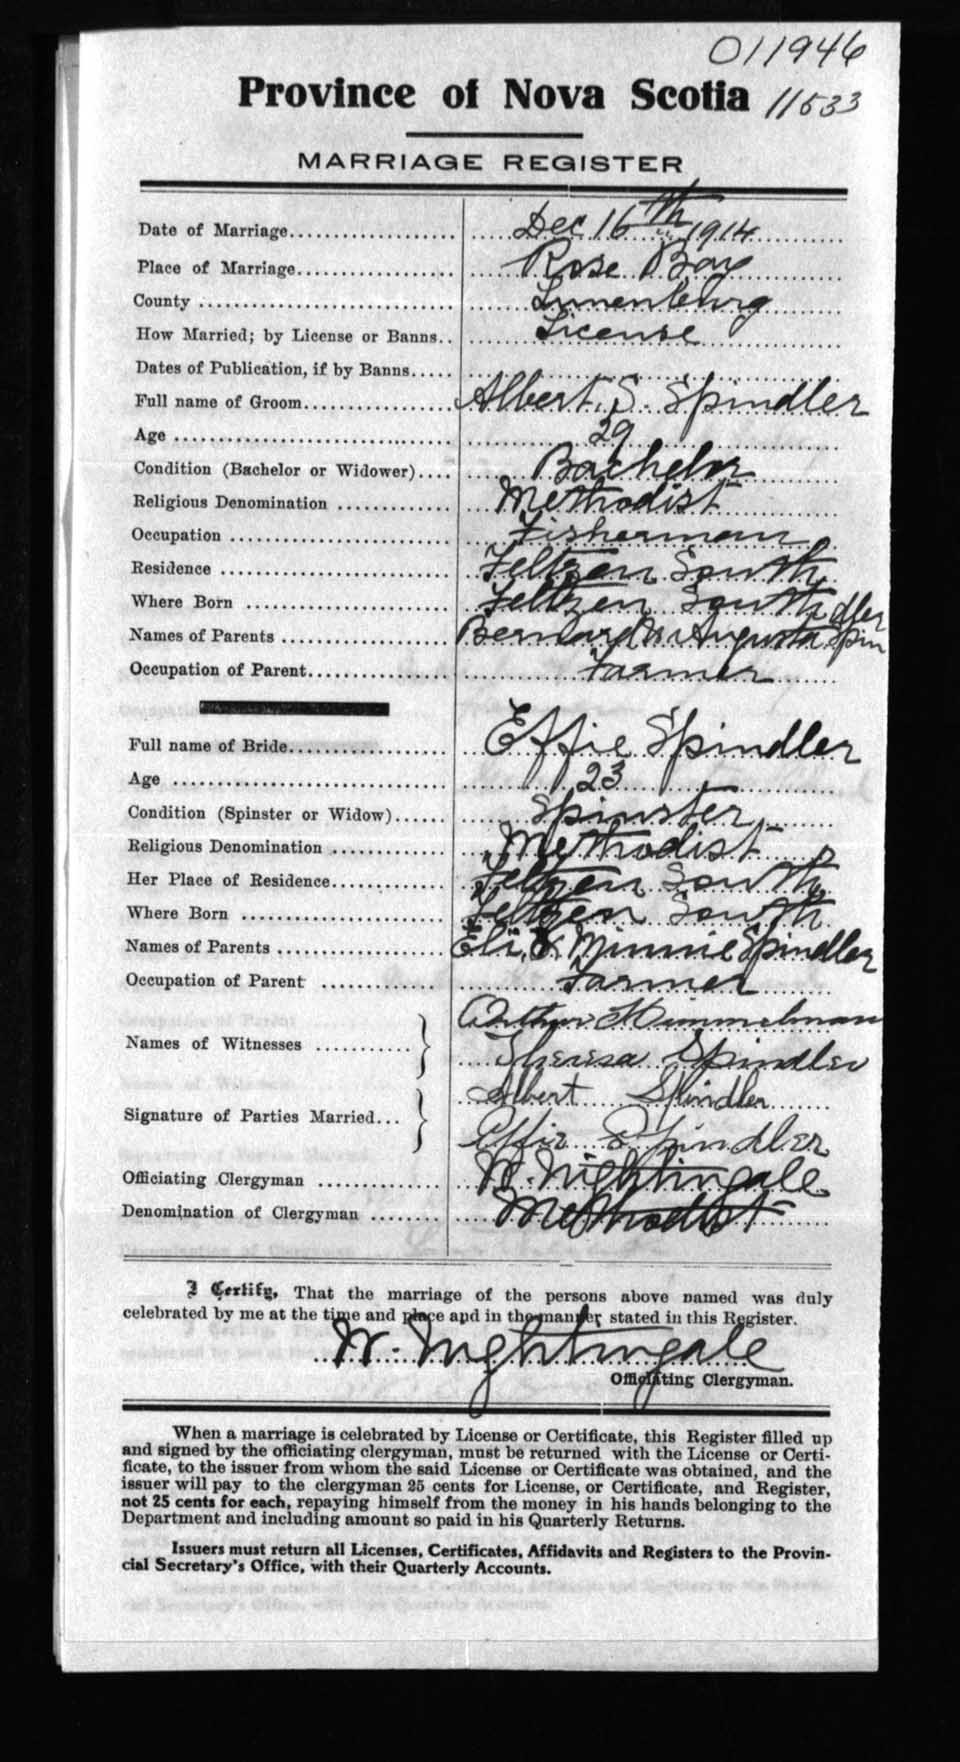 011946
Province of Nova Scotia 11533
MARRIAGE REGISTER
Date of Marriage Dec 16th 1914
Place of Marriage Rose Bay
County Lunenburg
How Married; by License or Banns License
Dates of Publication, if by Banns
Full name of Groom Albert S. Spindler
Age 29
Condition (Bachelor or Widower) Bachelor
Religious Denomination Methodist
Occupation Fisherman
Residence Feltzen South
Where Born Feltzen South
Names of Parents Bernard & Augusta Spindler
Occupation of Parent Farmer
Full name of Bride Effie Spindler
Age 23
Condition (Spinster or Widow) Spinster
Religious Denomination Methodist
Her Place of Residence Feltzen South
Where Born Feltzen South
Names of Parents Eli & Minnie Spindler
Occupation of Parent Farmer
Arthur Himmelman
Names of Witnesses
Theresa Spindler
Albert Spindler
Signature of Parties Married
Effie Spindler
Officiating Clergyman W. Nightingale
Denomination of Clergyman Methodist
I Certify, That the marriage of the persons above named was duly
celebrated by me at the time and place and in the manner stated in this Register.
W. Nightingale
Officiating Clergyman.
When a marriage is celebrated by License or Certificate, this Register filled up
and signed by the officiating clergyman, must be returned with the License or Certi-
ficate, to the issuer from whom the said License or Certificate was obtained, and the
issuer will pay to the clergyman 25 cents for License, or Certificate, and Register,
not 25 cents for each, repaying himself from the money in his hands belonging to the
Department and including amount so paid in his Quarterly Returns.
Issuers must return all Licenses, Certificates, Affidavits and Registers to the Provin-
cial Secretary's Office, with their Quarterly Accounts.